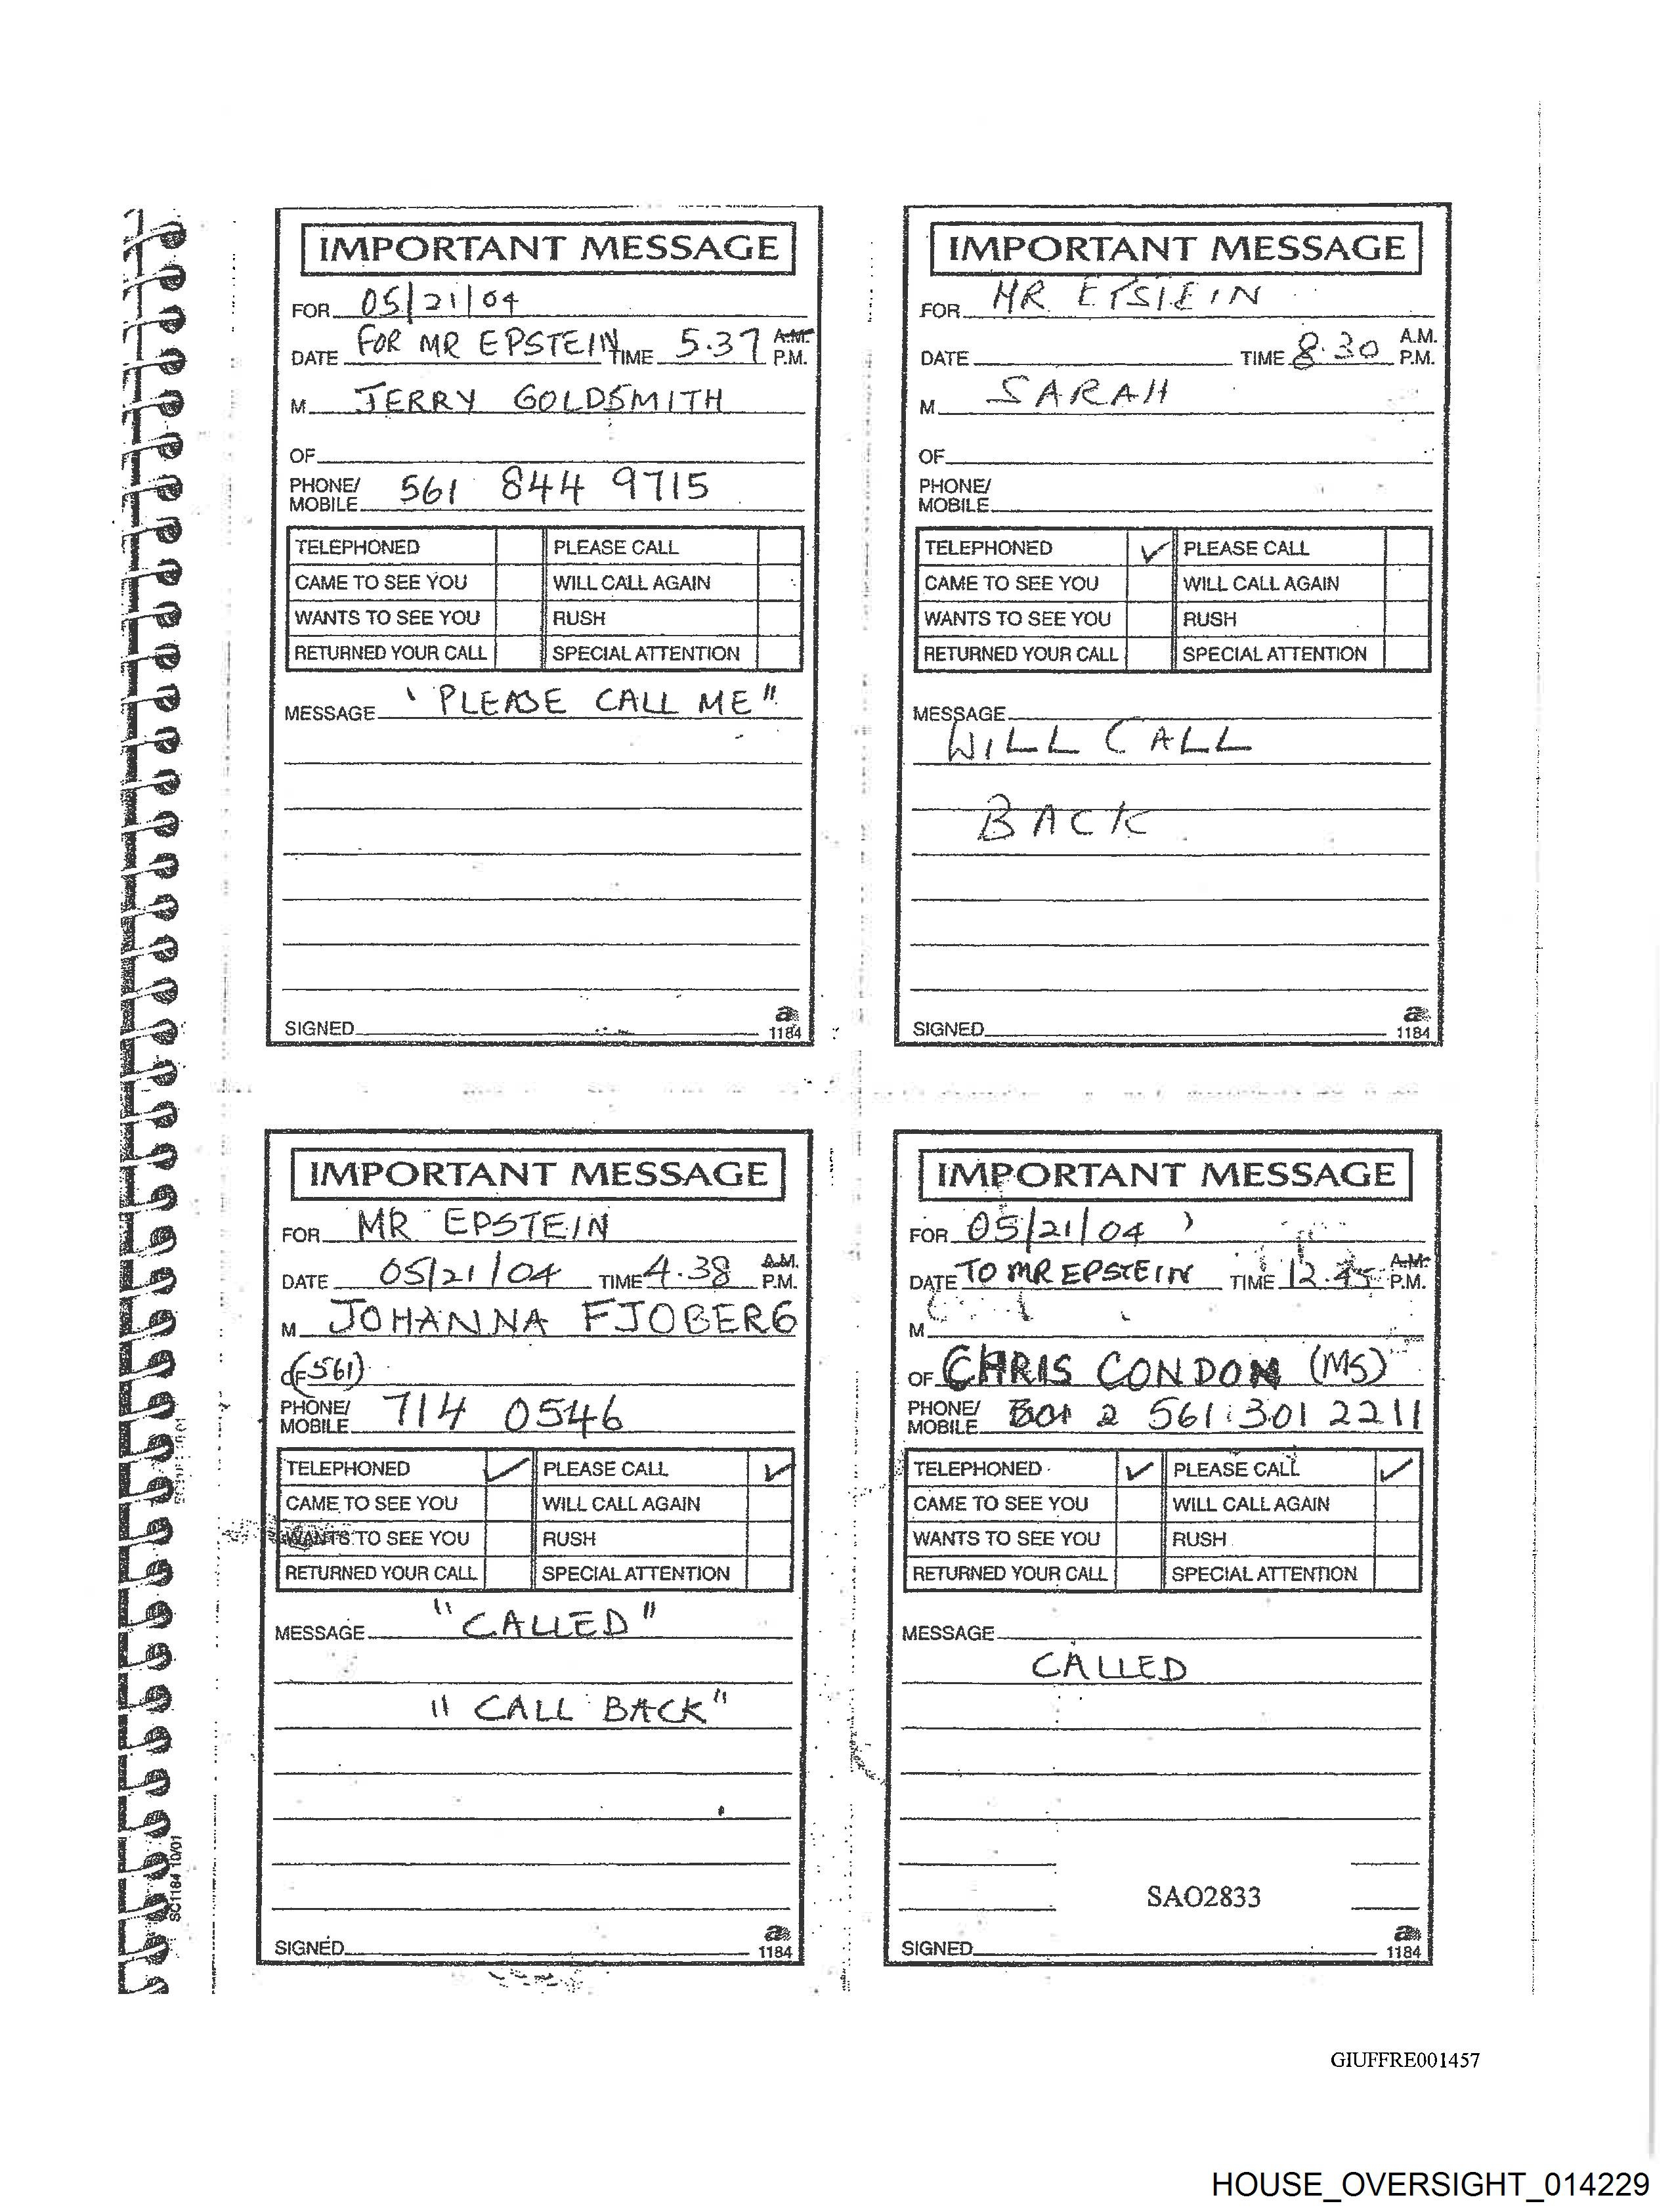 IMPORTANT MESSAGE
FOR 05/21/04
DATE FOR MR EPSTEIN TIME 5.37 A.M. P.M.
M JERRY GOLDSMITH
OF
PHONE/ MOBILE 561 844 9715
TELEPHONED PLEASE CALL
CAME TO SEE YOU WILL CALL AGAIN
WANTS TO SEE YOU RUSH
RETURNED YOUR CALL SPECIAL ATTENTION
MESSAGE "PLEASE CALL ME"
SIGNED
a 1184
IMPORTANT MESSAGE
FOR MR EPSTEIN
DATE TIME 8.30 A.M. P.M.
M SARAH
OF
PHONE/ MOBILE
TELEPHONED ✓ PLEASE CALL
CAME TO SEE YOU WILL CALL AGAIN
WANTS TO SEE YOU RUSH
RETURNED YOUR CALL SPECIAL ATTENTION
MESSAGE
WILL CALL
BACK
SIGNED
a 1184
IMPORTANT MESSAGE
FOR MR EPSTEIN
DATE 05/21/04 TIME 4.38 A.M. P.M.
M JOHANNA FJOBERG
OF (561)
PHONE/ MOBILE 714 0546
TELEPHONED ✓ PLEASE CALL ✓
CAME TO SEE YOU WILL CALL AGAIN
WANTS TO SEE YOU RUSH
RETURNED YOUR CALL SPECIAL ATTENTION
MESSAGE "CALLED"
"CALL BACK"
SIGNED
a 1184
IMPORTANT MESSAGE
FOR 05/21/04
DATE TO MR EPSTEIN TIME 12.45 A.M. P.M.
M
OF CHRIS CONDON (MS)
PHONE/ MOBILE 561 301 2211
TELEPHONED ✓ PLEASE CALL ✓
CAME TO SEE YOU WILL CALL AGAIN
WANTS TO SEE YOU RUSH
RETURNED YOUR CALL SPECIAL ATTENTION
MESSAGE
CALLED
SAO2833
SIGNED
a 1184
SC1184 10/01
GIUFFRE001457
HOUSE_OVERSIGHT_014229